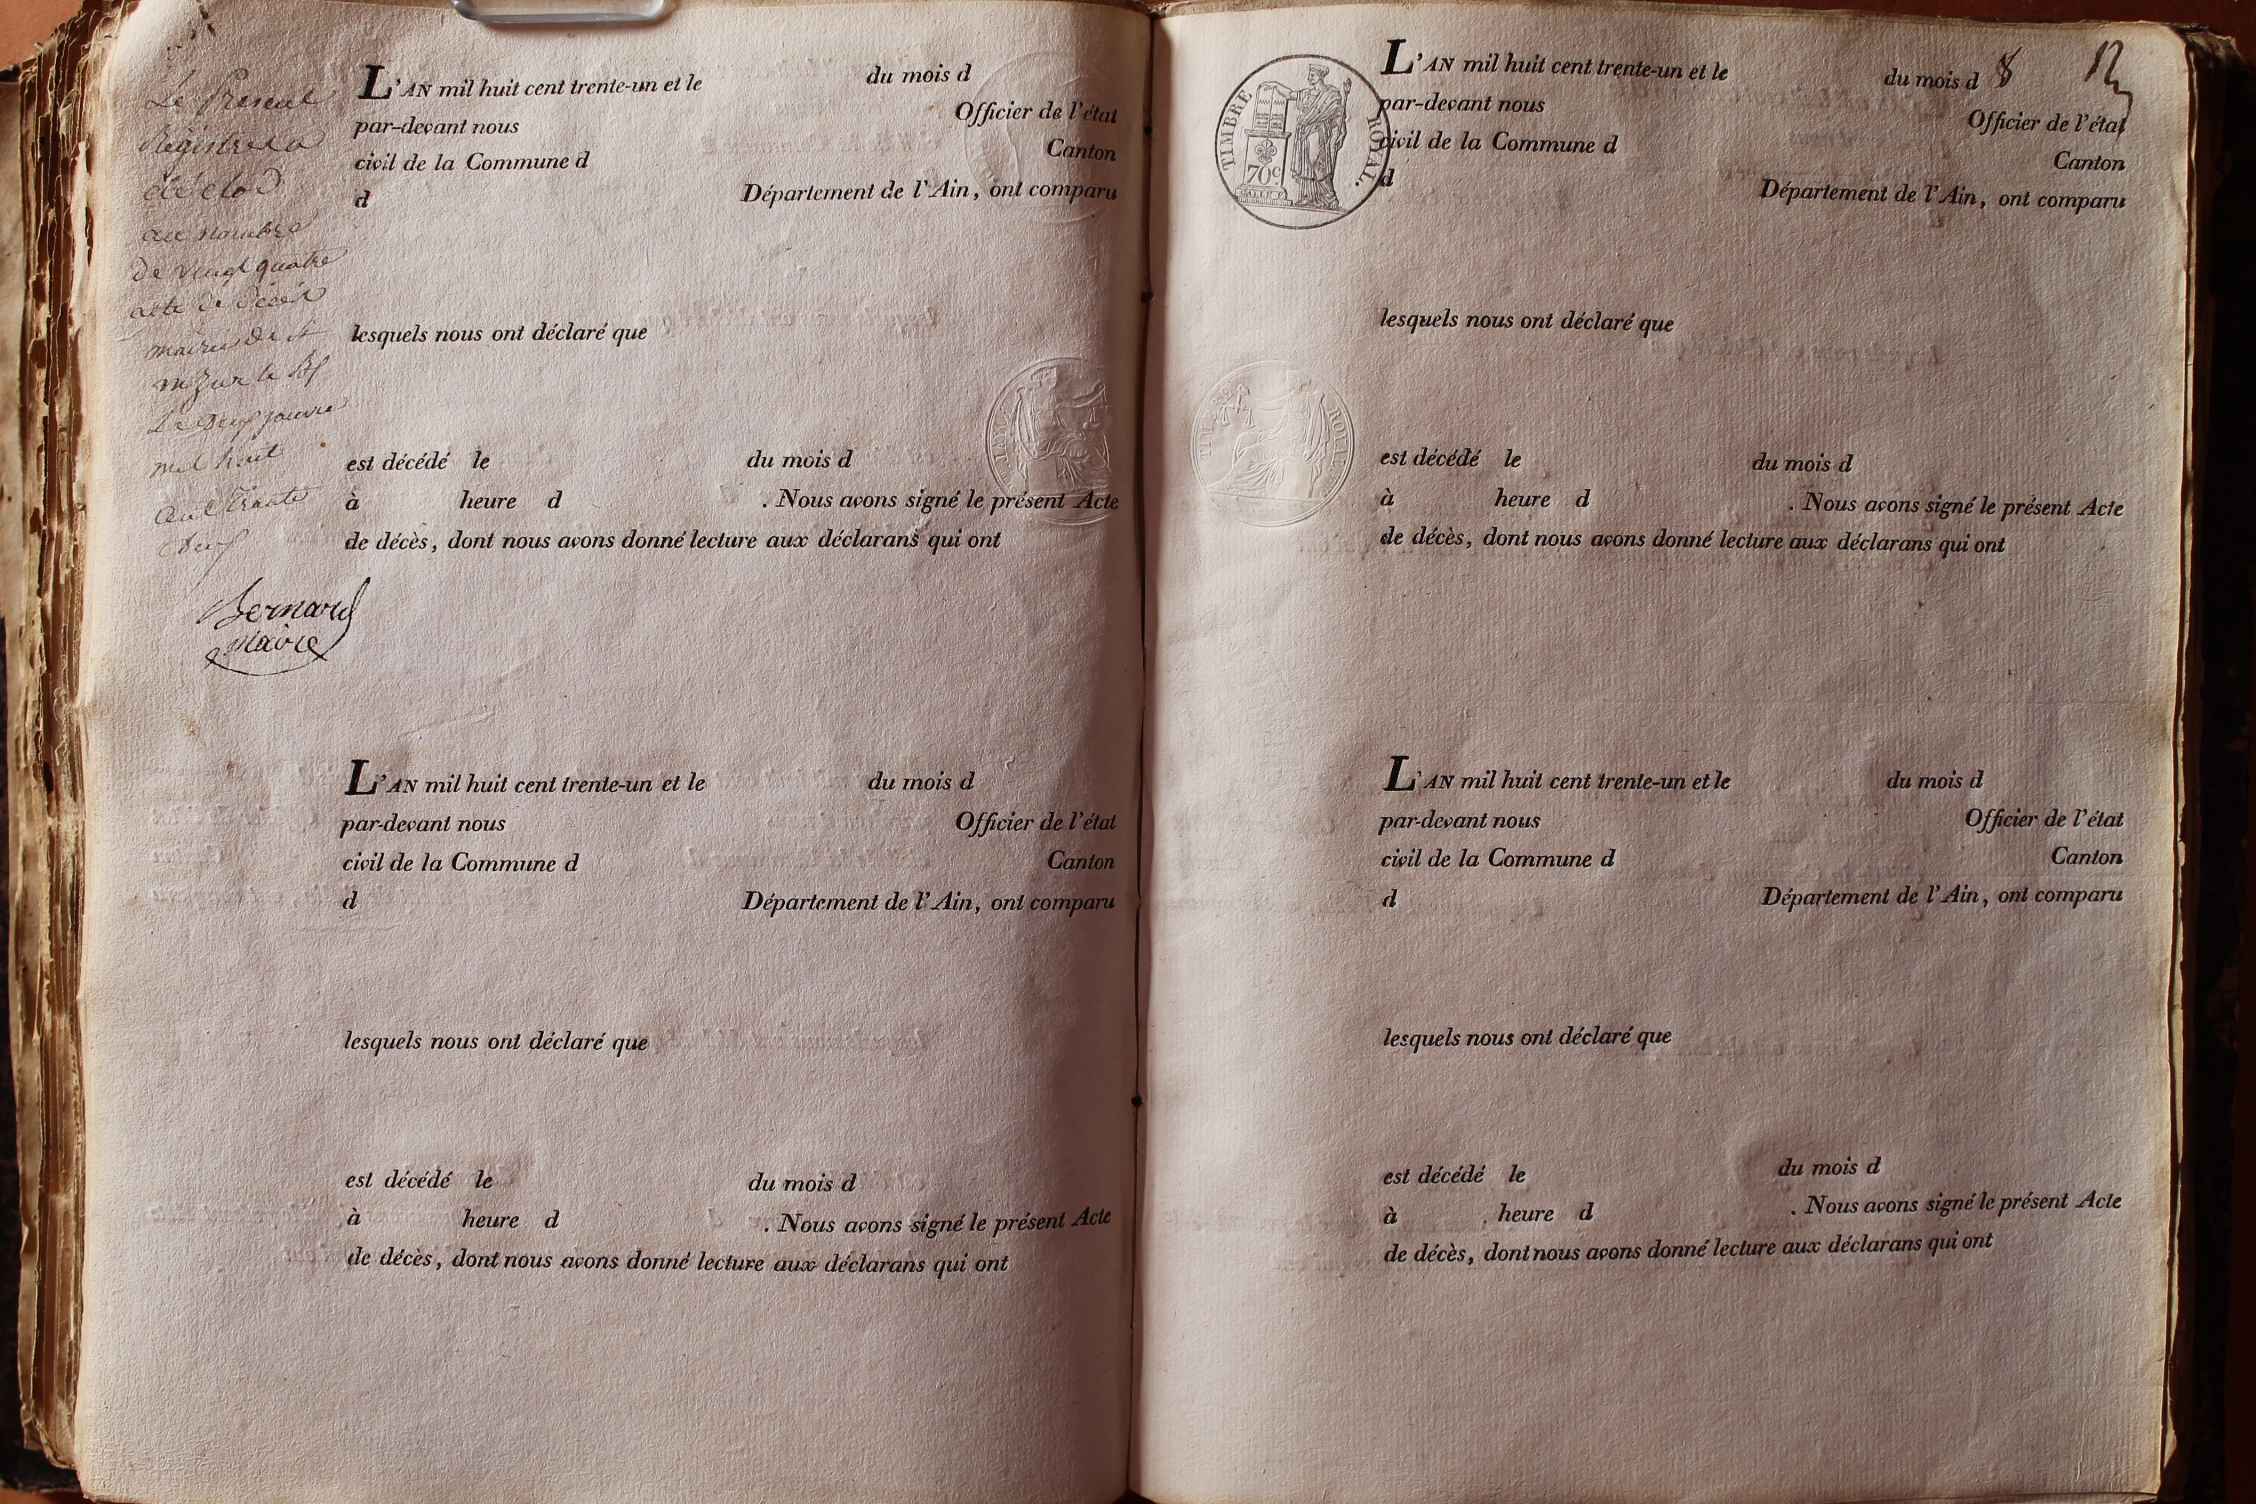 Le Présent
Régistre a
été clos
au nombre
de vingt quatre
acte de décés
mairie de St
le
mil huit
cent trente
Bernard
Maire
L'AN mil huit cent trente-un et le du mois d
par-devant nous Officier de l'état
civil de la Commune d Canton
d Département de l'Ain, ont comparu
lesquels nous ont déclaré que
est décédé le du mois d
à heure d . Nous avons signé le présent Acte
de décès, dont nous avons donné lecture aux déclarans qui ont
L'AN mil huit cent trente-un et le du mois d
par-devant nous Officier de l'état
civil de la Commune d Canton
d Département de l'Ain, ont comparu
lesquels nous ont déclaré que
est décédé le du mois d
à heure d . Nous avons signé le présent Acte
de décès, dont nous avons donné lecture aux déclarans qui ont
8 12
TIMBRE ROYAL.
70c
L'AN mil huit cent trente-un et le du mois d
par-devant nous Officier de l'état
civil de la Commune d Canton
d Département de l'Ain, ont comparu
lesquels nous ont déclaré que
est décédé le du mois d
à heure d . Nous avons signé le présent Acte
de décès, dont nous avons donné lecture aux déclarans qui ont
L'AN mil huit cent trente-un et le du mois d
par-devant nous Officier de l'état
civil de la Commune d Canton
d Département de l'Ain, ont comparu
lesquels nous ont déclaré que
est décédé le du mois d
à heure d . Nous avons signé le présent Acte
de décès, dont nous avons donné lecture aux déclarans qui ont